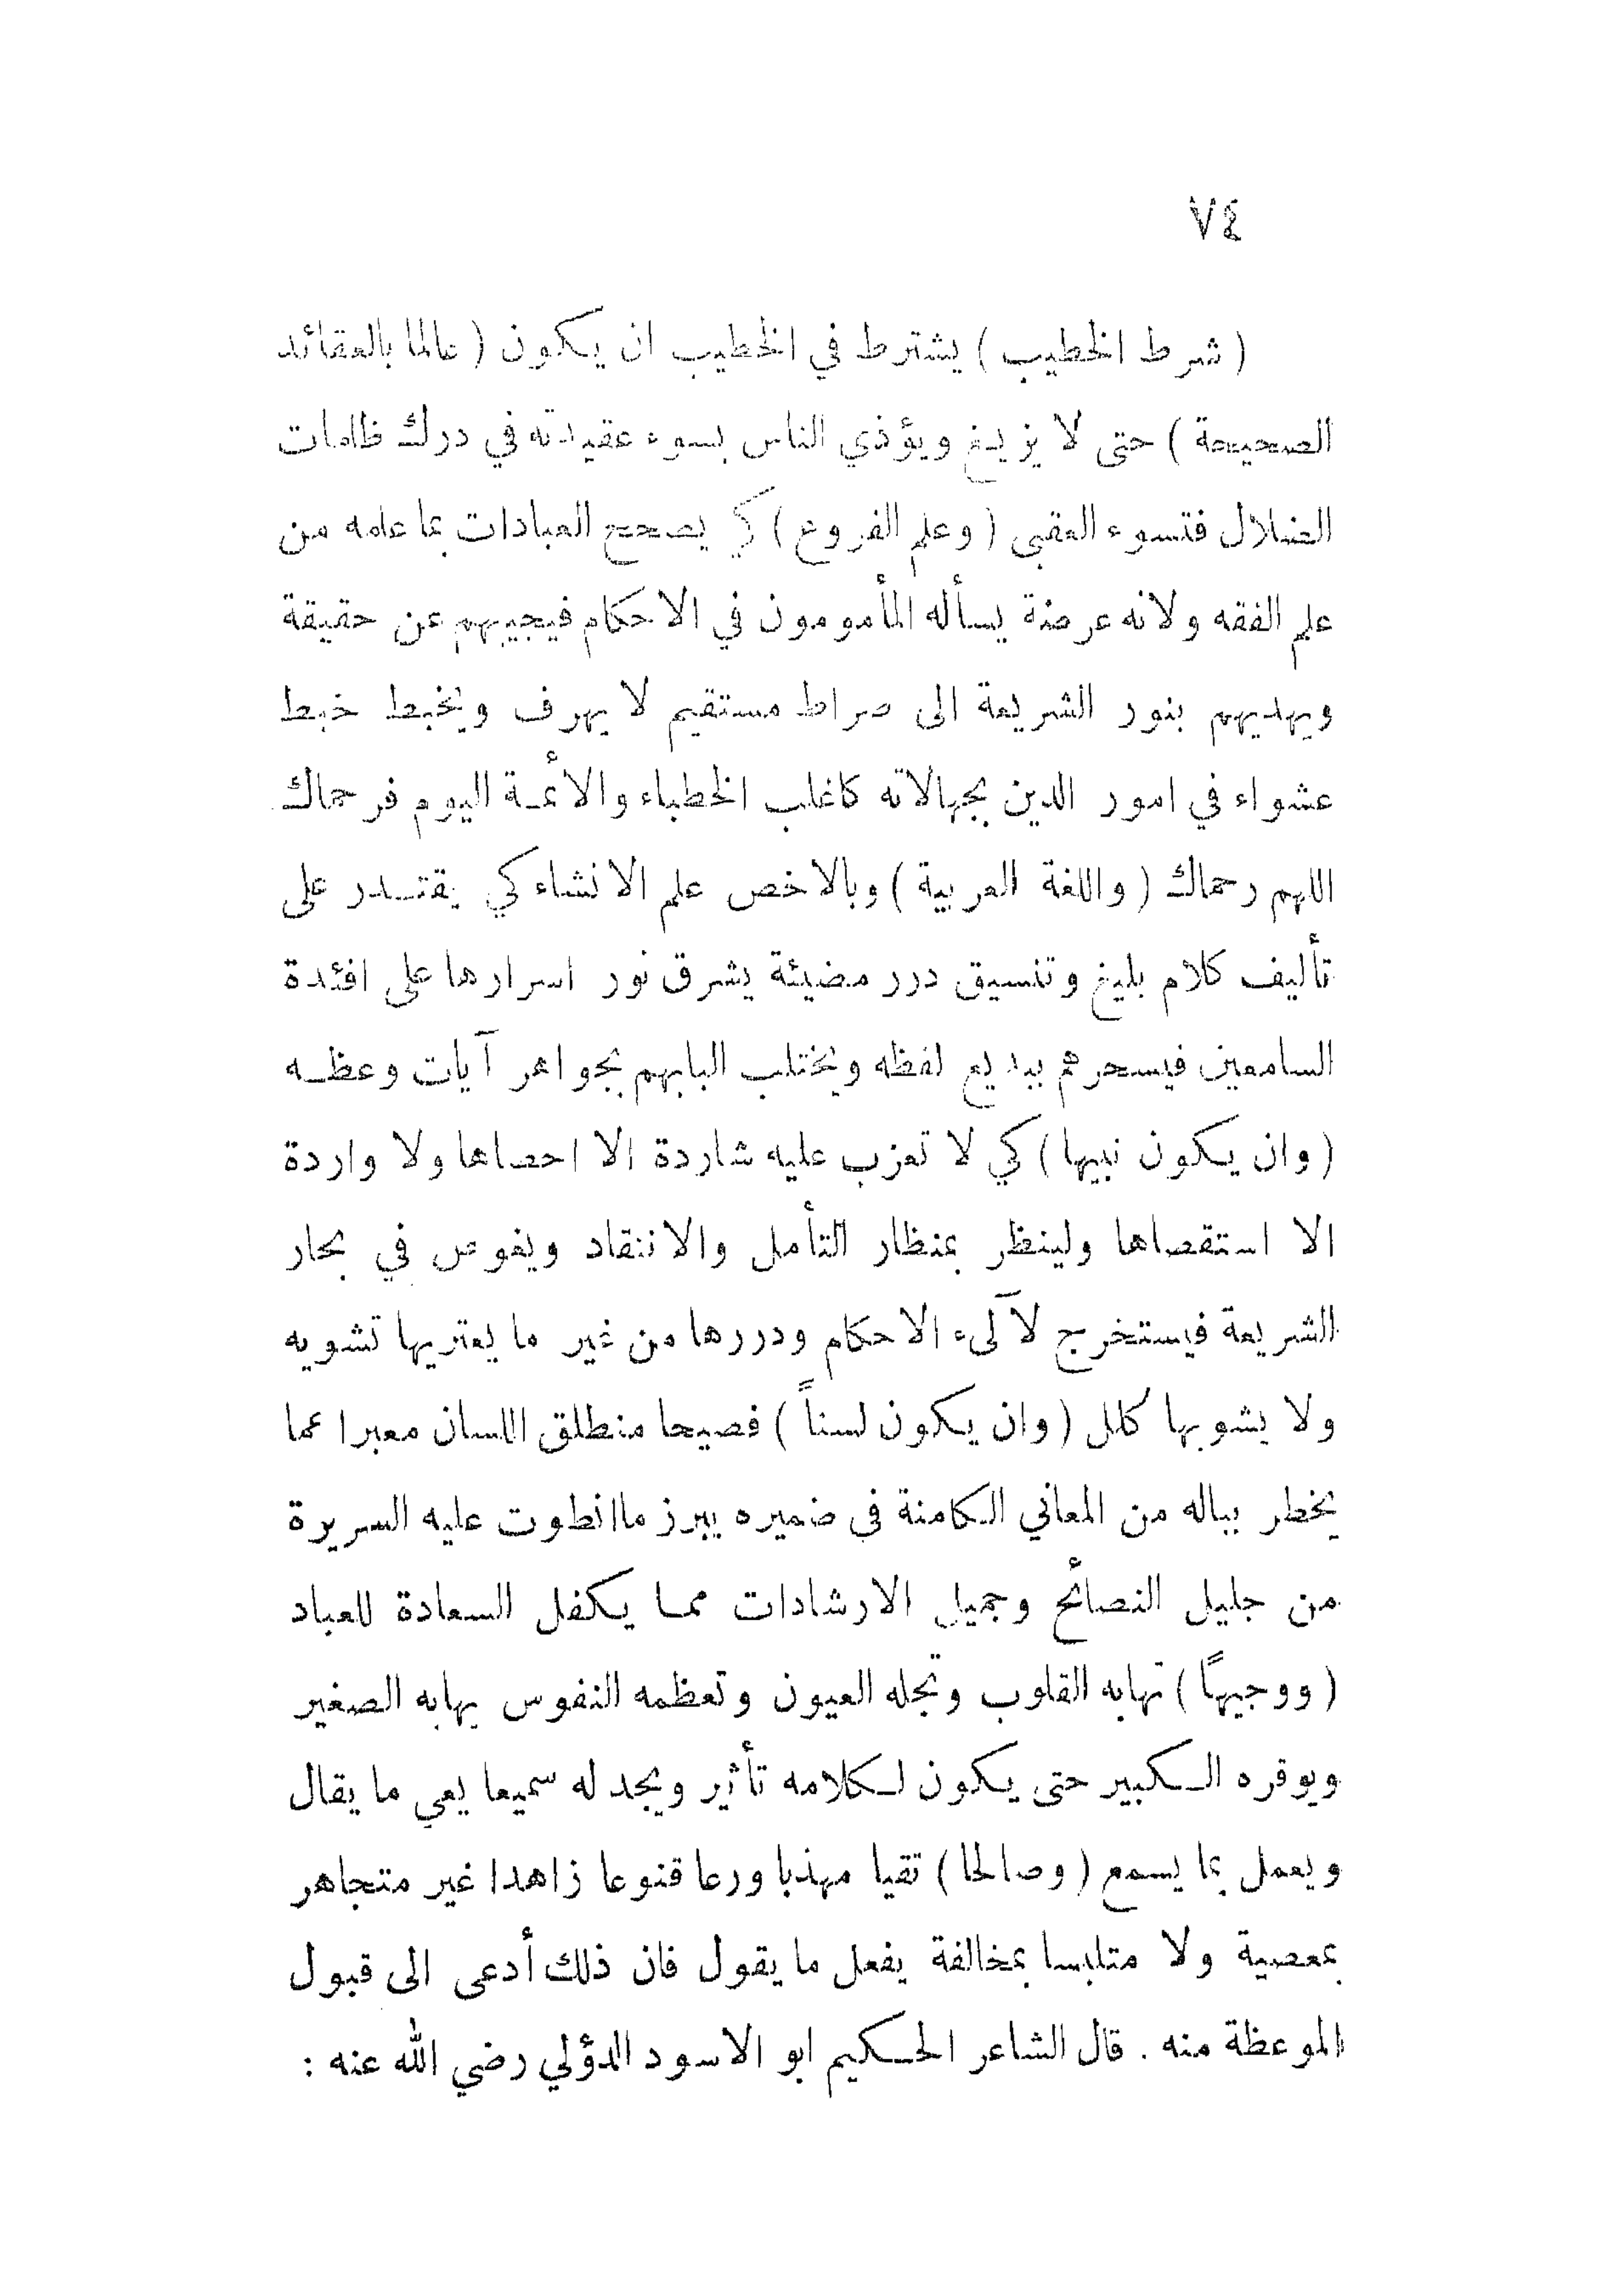 ٧٤
( شرط الخطيب ) يشترط في الخطيب ان يكون ( عالما بالعقائد
الصحيحة ) حتى لا يزيغ ويؤذي الناس بسوء عقيدته في درك ظلمات
الضلال فتسوء العقبى ( وعلم الفروع ) كي يصحح العبادات بما علمه من
علم الفقه ولانه عرضة يسأله المأمومون في الاحكام فيجيبهم عن حقيقة
ويهديهم بنور الشريعة الى صراط مستقيم لا يهرف ويخبط خبط
عشواء في امور الدين بجهالاته كاغلب الخطباء والأئمة اليوم فرحماك
اللهم رحماك ( واللغة العربية ) وبالاخص علم الانشاء كي يقتدر على
تأليف كلام بليغ وتنسيق درر مضيئة يشرق نور اسرارها على افئدة
السامعين فيسحرهم ببديع لفظه ويختلب البابهم بجواهر آيات وعظه
( وان يكون نبيها ) كي لا تعزب عليه شاردة الا احصاها ولا واردة
الا استقصاها ولينظر بمنظار التأمل والانتقاد ويغوص في بحار
الشريعة فيستخرج لآلىء الاحكام ودررها من غير ما يعتريها تشويه
ولا يشوبها كلل ( وان يكون لسناً ) فصيحا منطلق اللسان معبرا عما
يخطر بباله من المعاني الكامنة في ضميره يبرز ماانطوت عليه السريرة
من جليل النصائح وجميل الارشادات مما يكفل السعادة للعباد
( ووجيهاً ) تهابه القلوب وتجله العيون وتعظمه النفوس يهابه الصغير
ويوقره الكبير حتى يكون لكلامه تأثير ويجد له سميعا يعي ما يقال
ويعمل بما يسمع ( وصالحا ) تقيا مهذبا ورعا قنوعا زاهدا غير متجاهر
بمعصية ولا متلبسا بمخالفة يفعل ما يقول فان ذلك أدعى الى قبول
الموعظة منه . قال الشاعر الحكيم ابو الاسود الدؤلي رضي الله عنه :